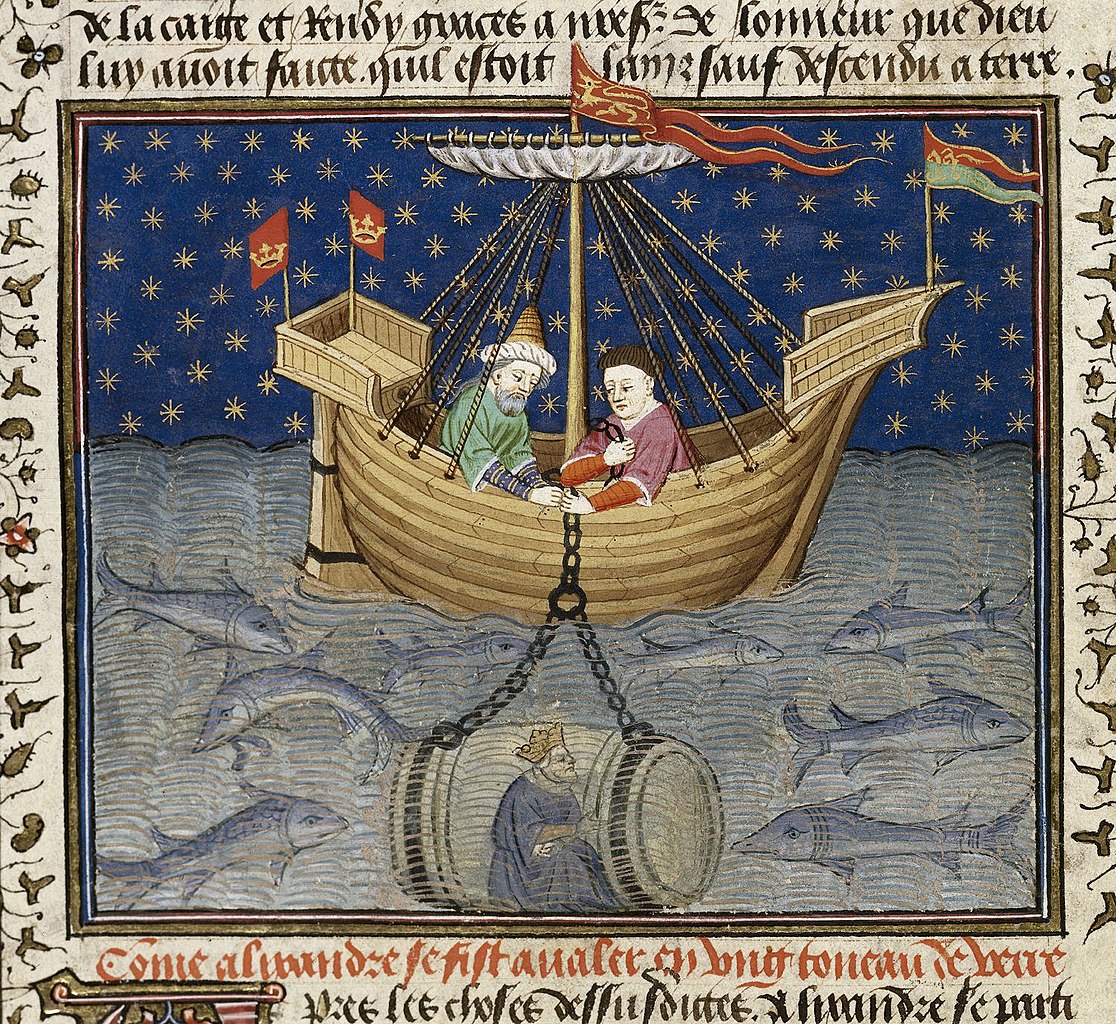 de la caige et Rendy graces a
luy auoit faicte. quil estoit sauf descendu a terre.
Come alixandre se fist aualer en vng toneau de verre
pres les choses dessusdictes. Alixandre se parti